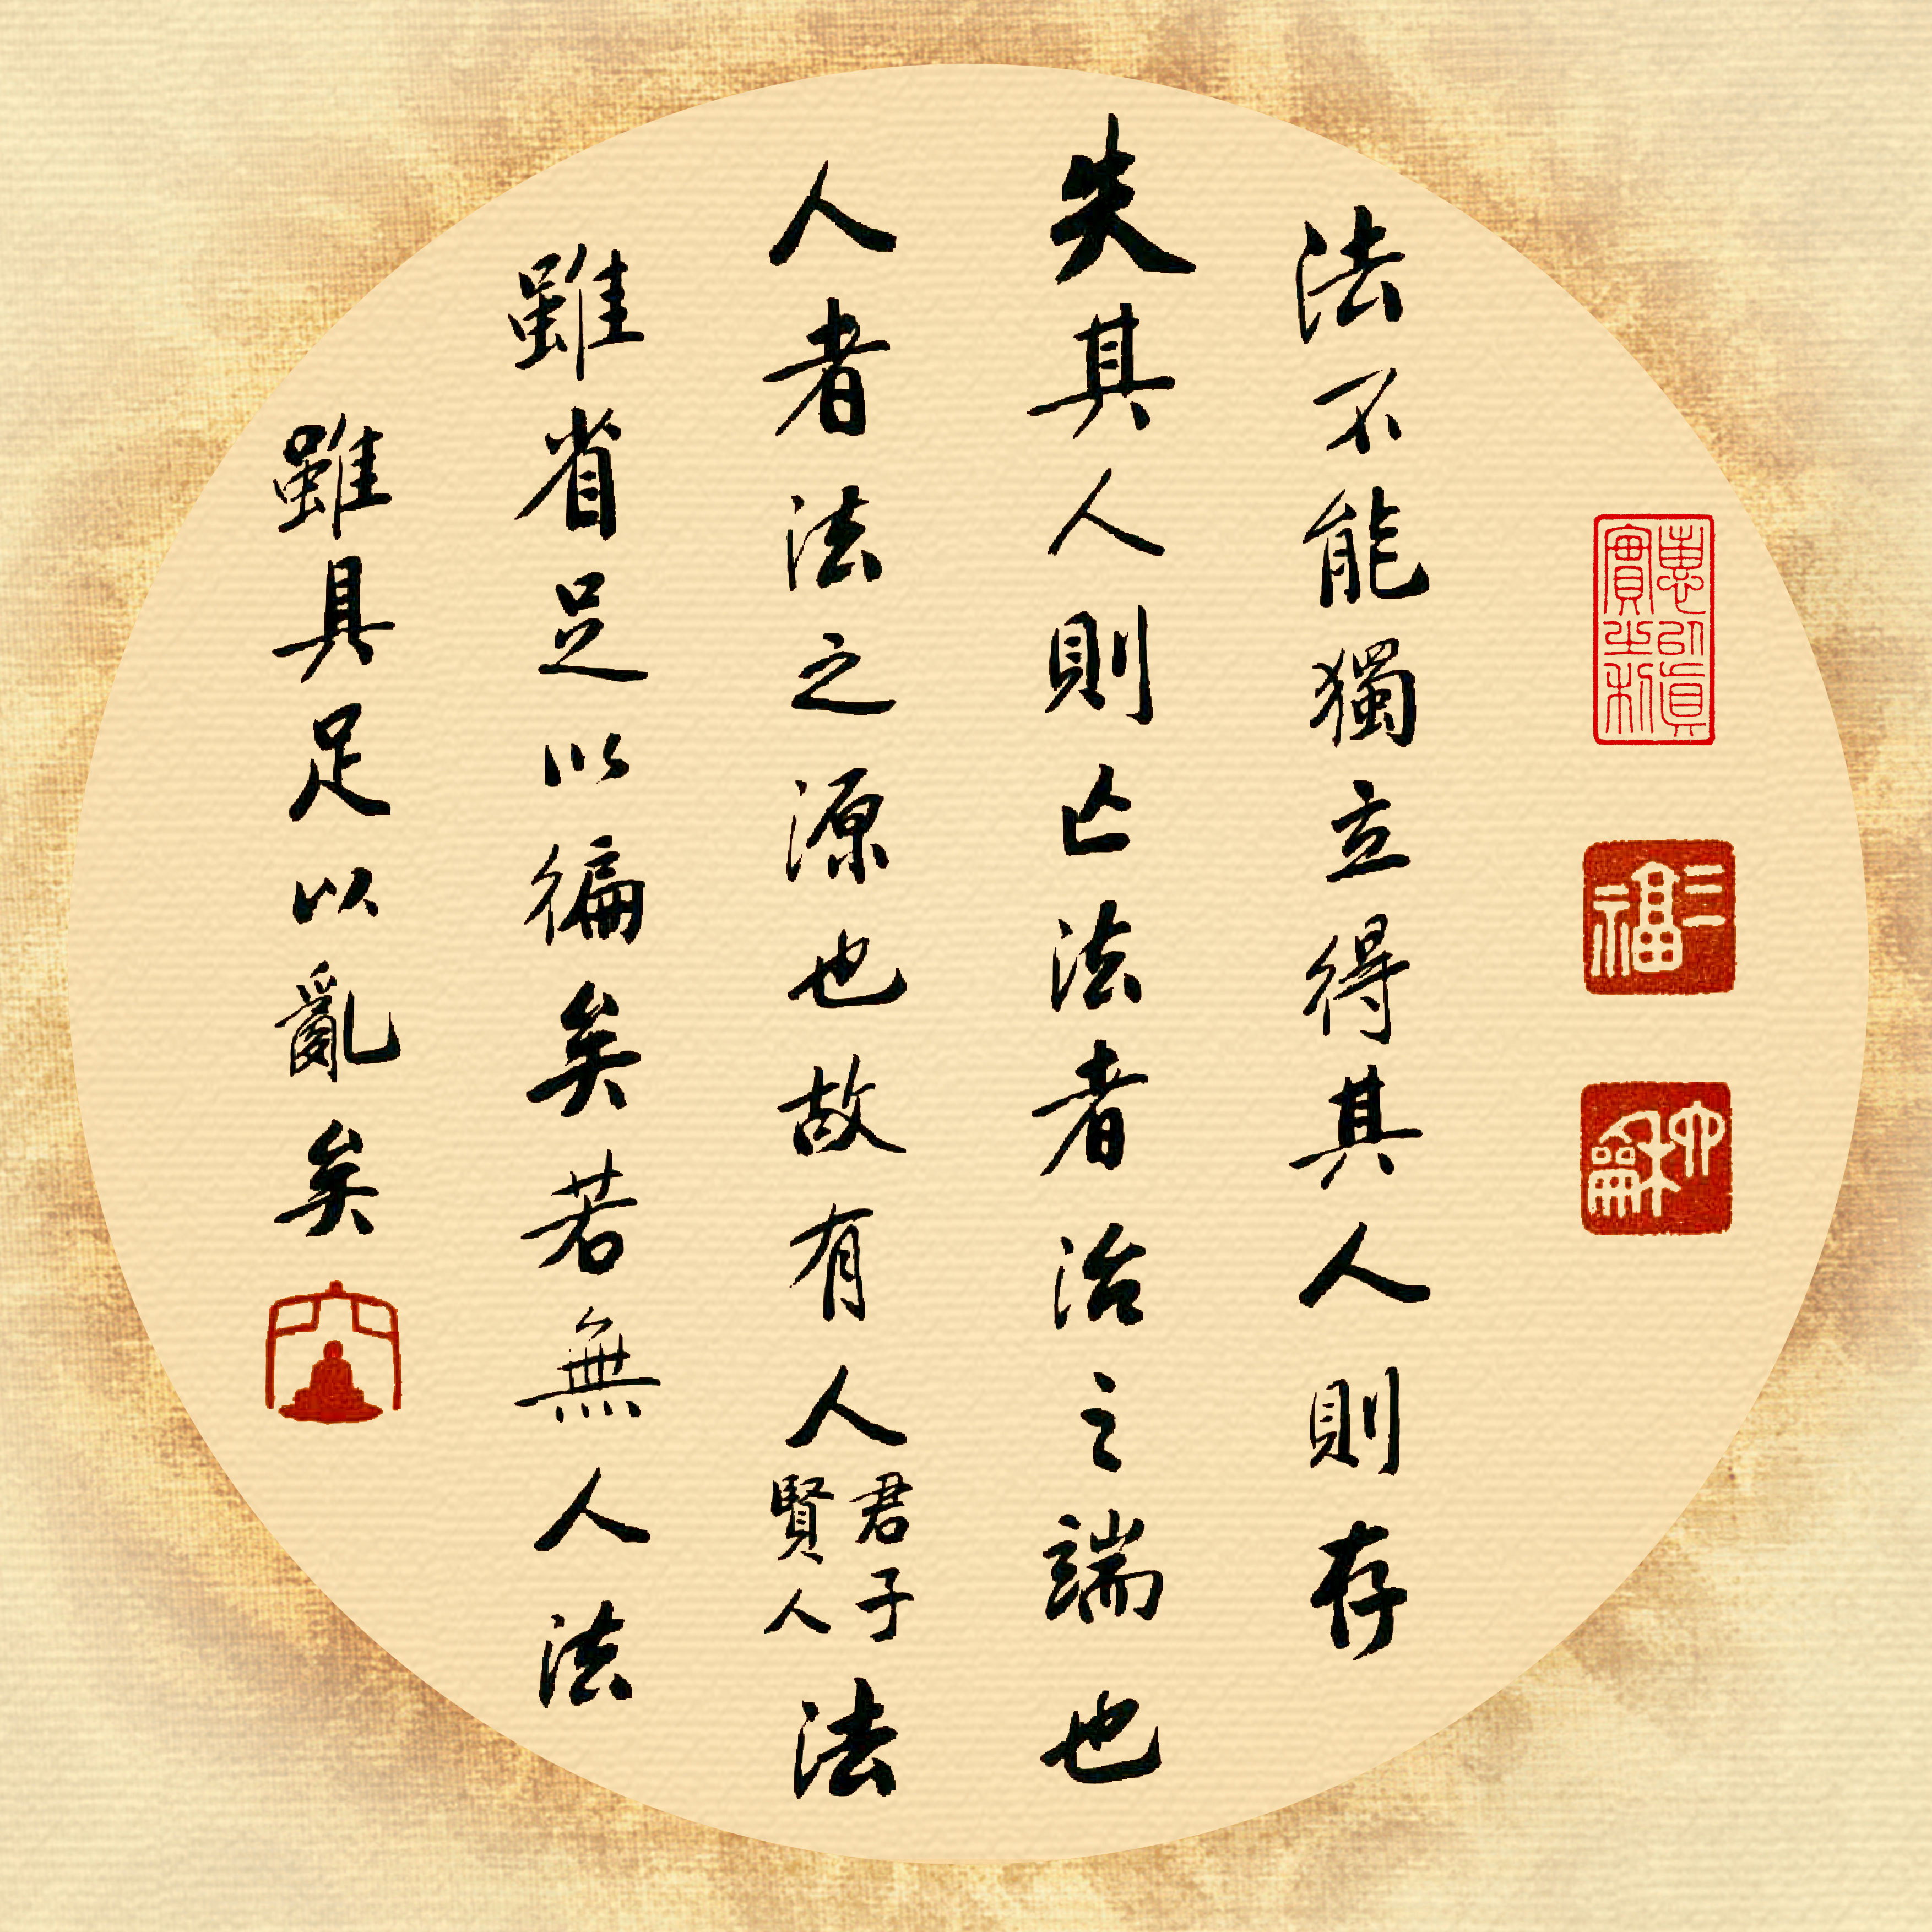 惠以真實之利
三福
六龢
法不能獨立得其人則存
失其人則亡法者治之端也
人者法之源也故有人君子賢人法
雖省足以徧矣若無人法
雖具足以亂矣